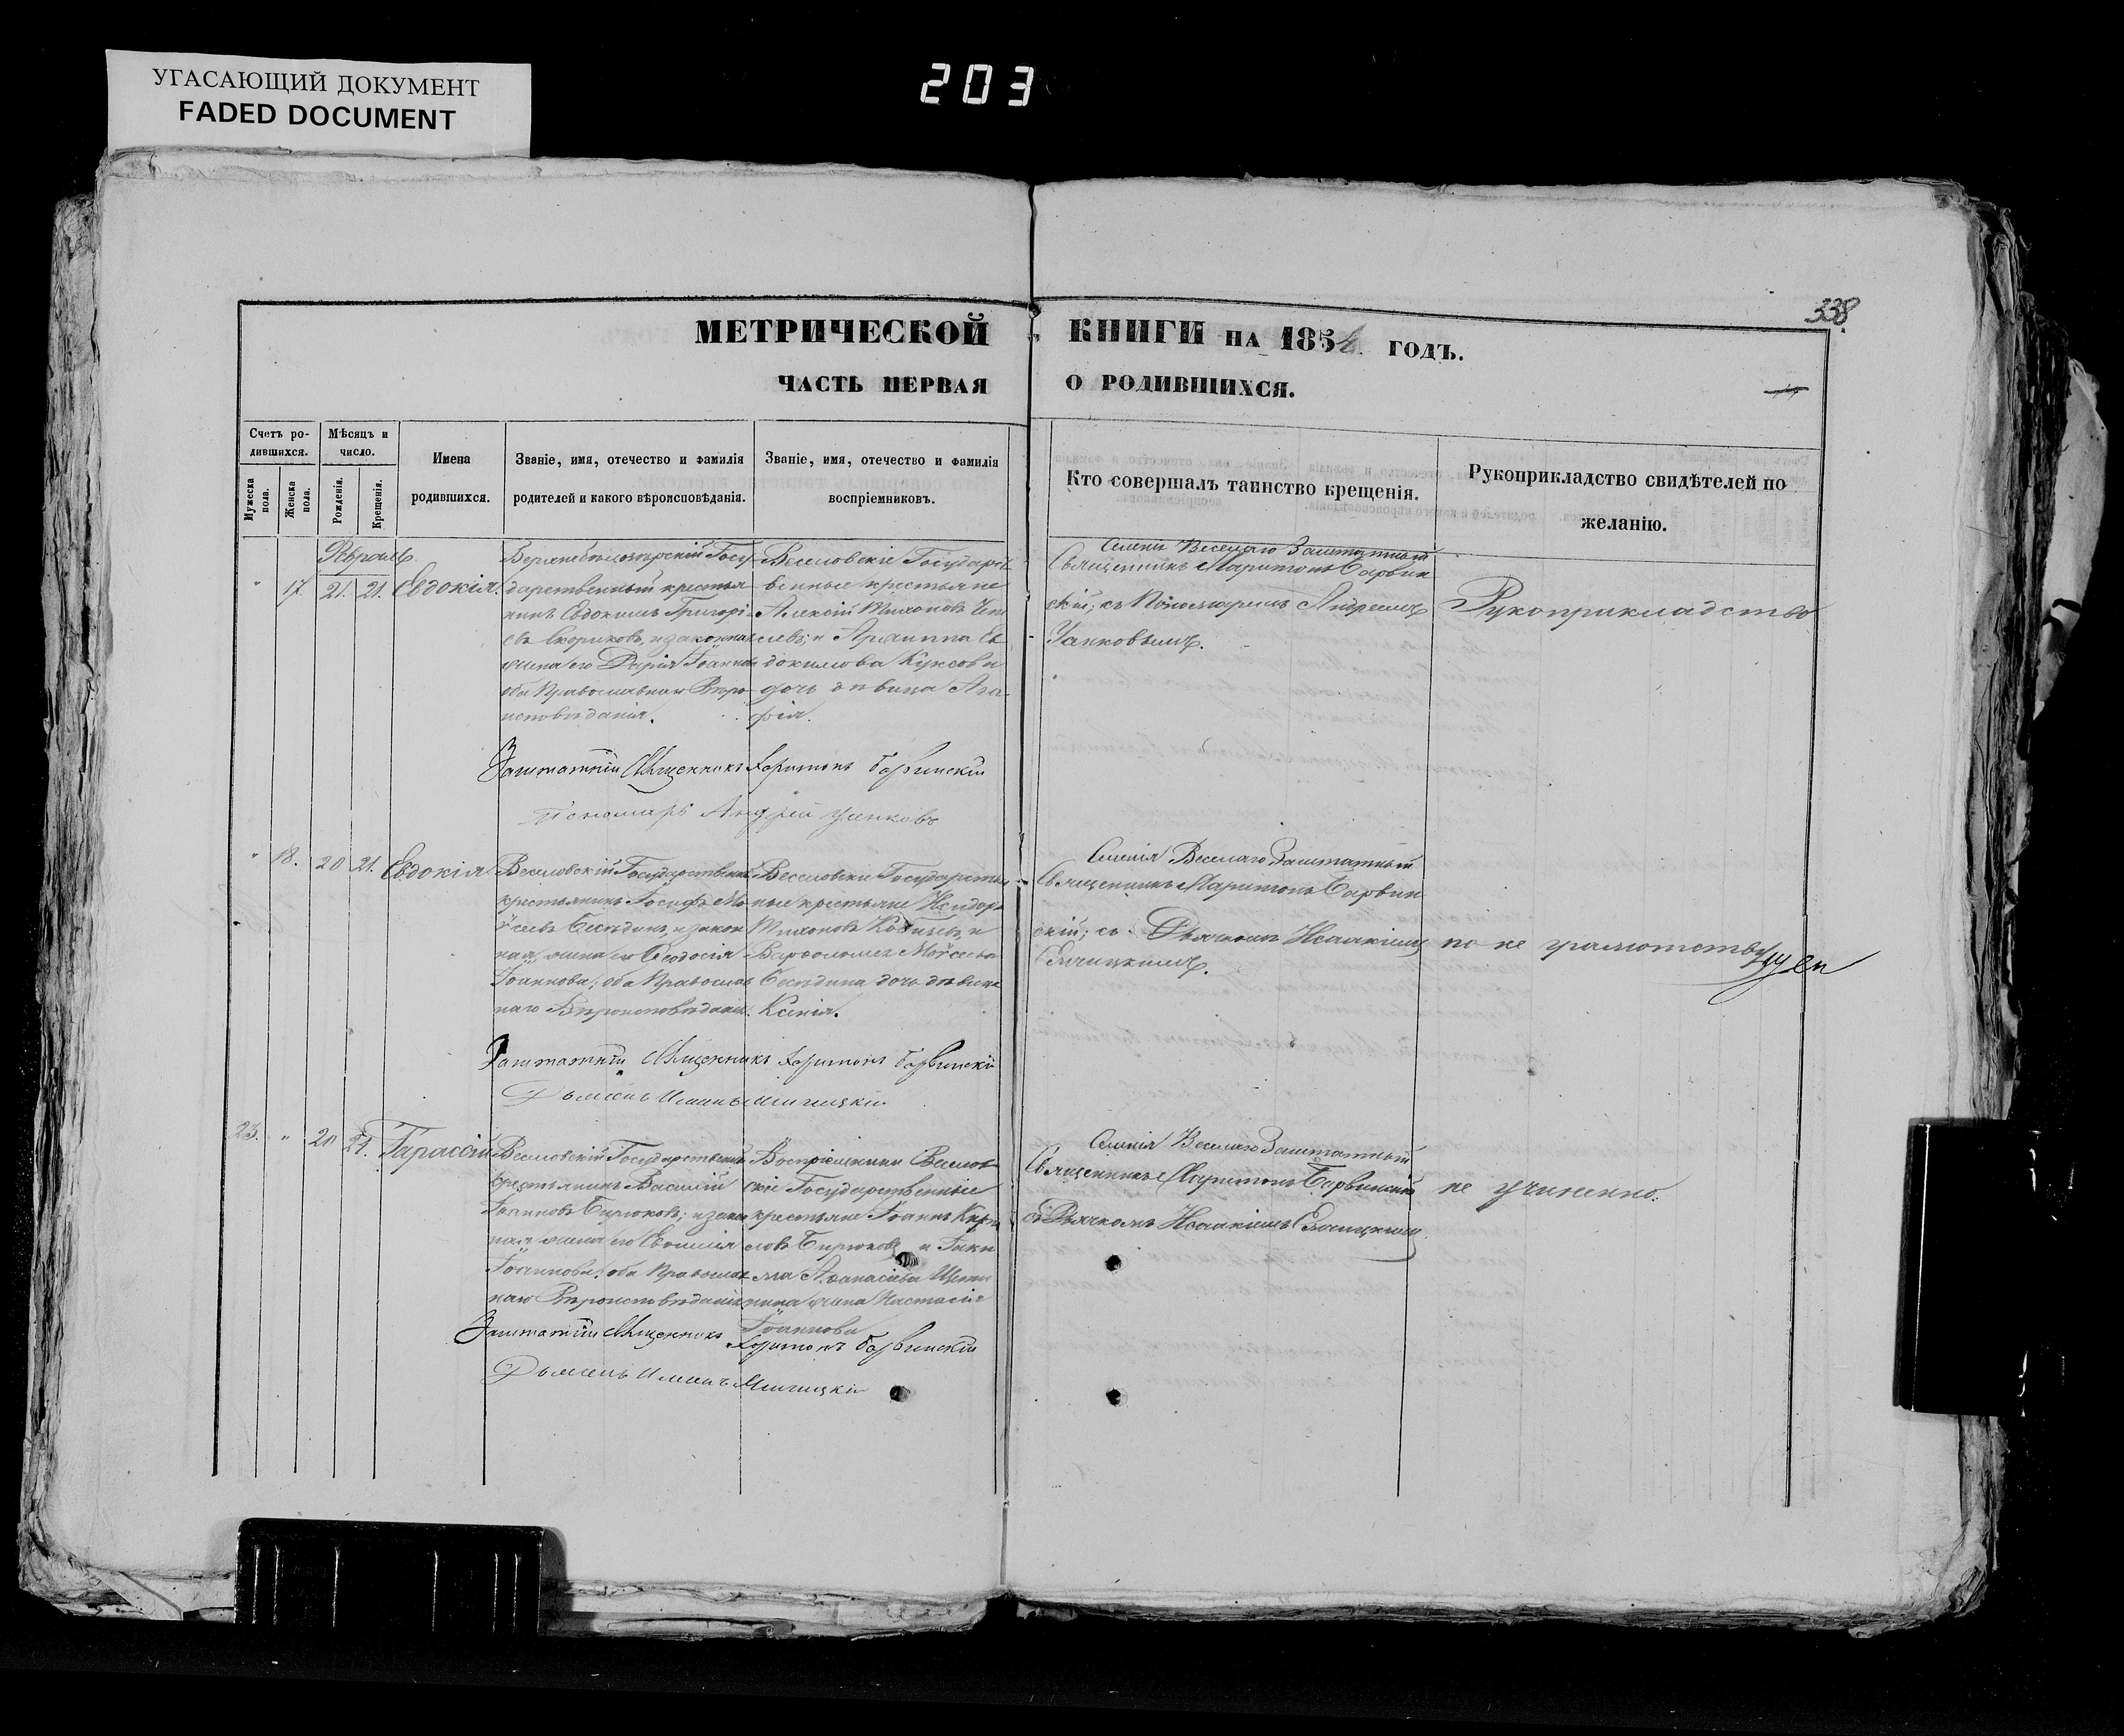 УГАСАЮЩИЙ ДОКУМЕНТ
FADED DOCUMENT
203
338
МЕТРИЧЕСКОЙ КНИГИ НА 185 ГОДЪ.
ЧАСТЬ ПЕРВАЯ О РОДИВШИХСЯ.
Счетъ ро-
дившихся.
Мужеска пола.
Женска пола.
Мѣсяцъ и
число.
Рожденія.
Крещенія.
Имена
родившихся.
Званіе, имя, отечество и фамилія
родителей и какого вѣроисповѣданія.
Званіе, имя, отечество и фамилія
воспріемниковъ.
Кто совершалъ таинство крещенія.
Рукоприкладство свидѣтелей по
желанію.
17. 21. 21. Евдокія.
дарственный крестья
нинъ Евдокимъ Григорі-
евъ Скориковъ, и законная
жена его Дарія Іоаннова
оба Православнаго Вѣро-
исповѣданія.
Веселовскіе Государст
венные крестьяне
Алексій Тихоновъ
и Агриппа Ев
докимова Куксова
дочь дѣвица Ага-
фія.
Селенія Веселаго Заштатный
Священникъ Харитонъ Барвин
скій; съ Пономаремъ Андреемъ
Уанковымъ.
Рукоприкладство
Заштатній Священникъ Харитонъ Барвинскій
Пономарь Андрей
18. 20 21. Евдокія
Веселовскій Государственный
крестьянинъ Іосифъ Мо
ѵсеевъ Бесѣдинъ, и закон
ная жена его Ѳеодосія
Іоаннова; оба Православ
наго Вѣроисповѣданія.
Веселовскіе Государствен
ные крестьяне Исидоръ
Тихоновъ и
Варѳоломея Моѵсеева
Бесѣдина дочь дѣвица
Ксенія.
Селенія Веселаго Заштатный
Священникъ Харитонъ Барвин
скій; съ Дьячкомъ Исаакіемъ
по не грамотству
Заштатній Священникъ Харитонъ Барвинскій
23. " 20 21. Тарассій
Веселовскій Государственный
крестьянинъ Василій
Іоанновъ Бирюковъ; и закон
ная жена его Евѳимія
Іоаннова; оба Православ
наго Вѣроисповѣданія
Воспріемники Веселов
скіе Государственные
крестьяне Іоаннъ Кири
ловъ Бирюковъ и Гаки
ма Аѳанасіева
жена Настасія
Іоаннова
Селенія Веселаго Заштатный
Священникъ Харитонъ Барвинскій
съ Дьячкомъ Исаакіемъ
не учинено.
Заштатній Священникъ Харитонъ Барвинскій